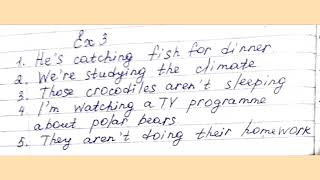 Ex 3
1. He's catching fish for dinner
2. We're studying the climate
3. Those crocodiles aren't sleeping
4. I'm watching a TV programme
about polar bears
5. They aren't doing their homework